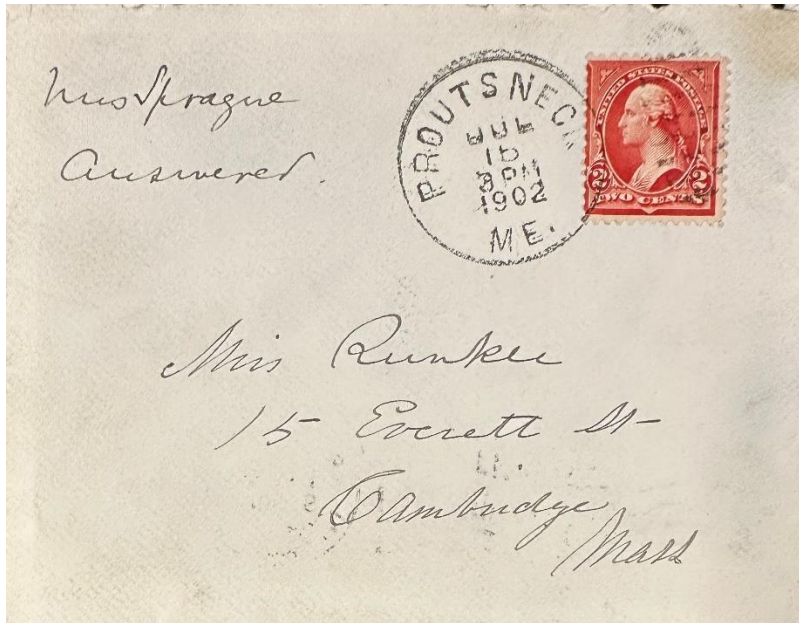 Miss Sprague
Answered.
PROUTS NECK
JUL
15
3 PM
1902
ME.
UNITED STATES POSTAGE
2 2
TWO CENTS
Miss Runkle
15 Everett St
Cambridge
Mass